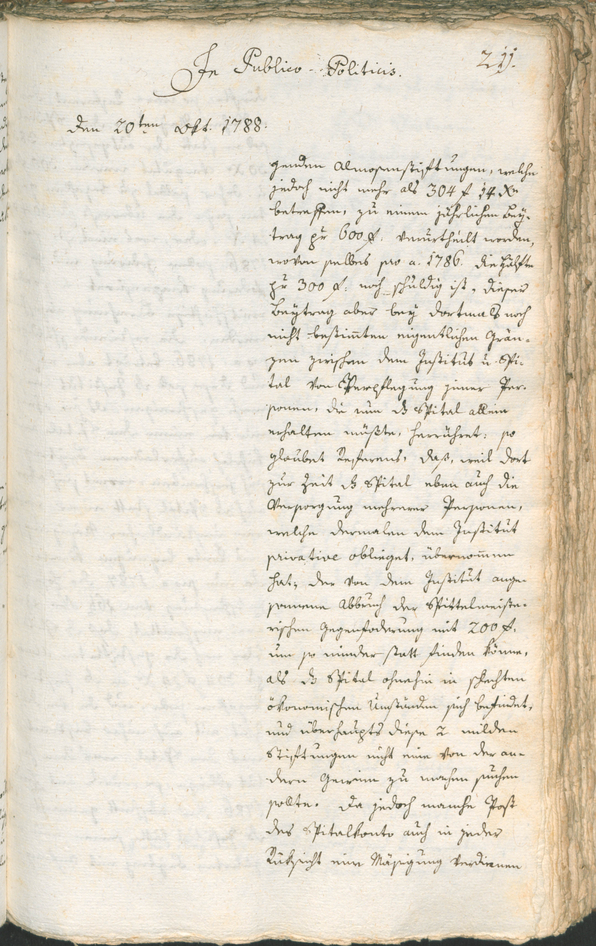 In Publico-Politicis.
211.
den 20ten Okt. 1788.
genden Almosenstiftungen, welche
jedoch nicht mehr als 304 f 14 Xr
betreffen, zu einem jährlichen Bey-
trag pr 600 f. verurtheilt worden,
wovon selbes pro a. 1786. die Hälfte
pr 300 f: noch schuldig ist. dieser
Beytrag aber bey dortmals noch
nicht bestimten eigentlichen Grän-
zen zwischen dem Institut u. Spi-
tal von Verpflegung jener Per-
sonen, die nun ds Spital allein
erhalten müßte, herrühret: so
glaubet Referent, daß, weil dort
zur Zeit ds Spital eben auch die
Versorgung mehrerer Personen,
welche dermalen dem Institut
privative oblieget, übernommen
hat, der von dem Institut ange-
sonnene Abbruch der Spittelmeiste-
rischen Gegenfoderung mit 200 f.
um so minder statt finden könne,
als ds Spital ohnehin in schlechten
ökonomischen Umständen sich befindet,
und überhaupts diese 2 milden
Stiftungen nicht eine von der an-
dern Gewinn zu machen suchen
sollte. Da jedoch manche Post
des Spitalkonto auch in jeder
Rüksicht eine Mäsigung verdienen